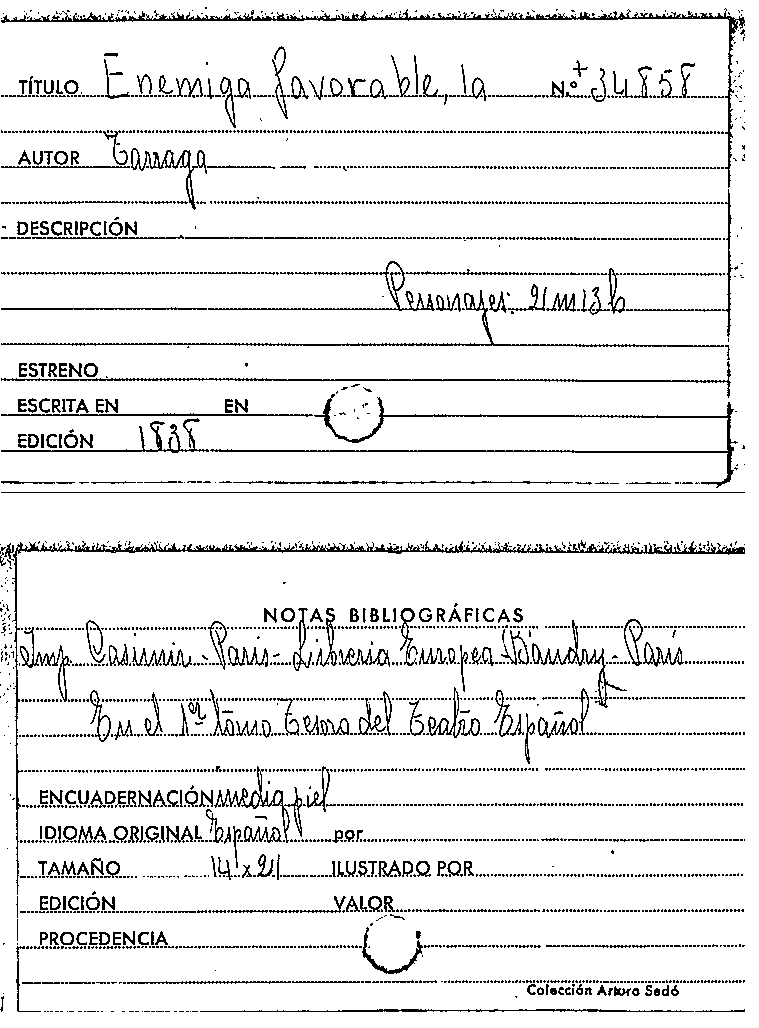 TÍTULO Enemiga favorable, la N.º + 34858
AUTOR Tarraga
DESCRIPCIÓN
Personajes: 2/m 13 h
ESTRENO
ESCRITA EN EN
EDICIÓN 1838
NOTAS BIBLIOGRÁFICAS
Imp Casimir - Paris - Libreria Europea Baudry - Paris
En el 1er tomo Tesoro del Teatro Español
ENCUADERNACIÓN media piel
IDIOMA ORIGINAL Español por
TAMAÑO 14 x 21 ILUSTRADO POR
EDICIÓN VALOR
PROCEDENCIA
Colección Arturo Sedó